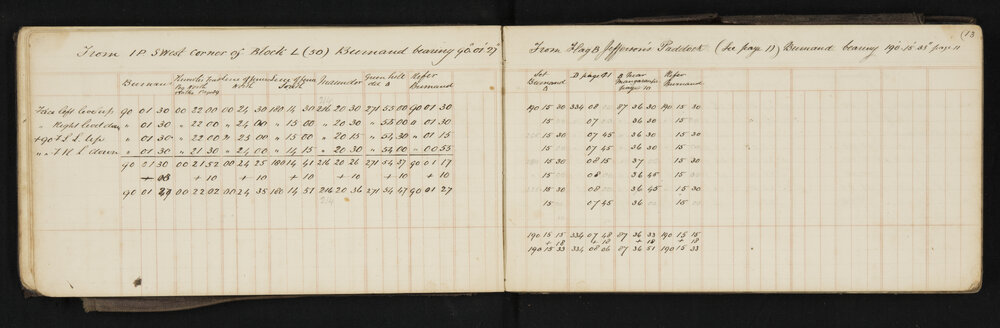 From I.P. S West Corner of Block L (50) Burnand bearing 90° 01' 27"
Burnand
North
South
Refer Burnand
Face left level up. 90 01 30 00 22 00 00 24 30 180 15 00 216 20 30 271 55 00 90 01 30
" Right level down " 01 30 " 22 00 " 24 00 " 15 00 " 20 30 " 55 00 " 01 30
+90 F L L up " 01 30 " 22 00 " 25 00 " 15 00 " 20 15 " 54 30 " 01 15
" " F R L down " 01 30 " 21 30 " 24 00 " 14 15 " 20 30 " 54 00 " 00 55
90 01 30 00 21 52 00 24 25 180 14 41 216 20 26 271 54 37 90 01 17
+ 10 + 10 + 10 + 10 + 10 + 10
90 01 27 00 22 02 00 24 35 180 14 51 216 20 36 271 54 47 90 01 27
214
(13)
From Flag B Jefferson's Paddock (See page 11) Burnand bearing 190° 15' 33" page 11
Set Burnand B
D page 21
page 10
Refer Burnand
190 15 30 334 08 00 87 36 30 190 15 30
15 07 36 30 15
15 30 07 45 36 30 15 30
15 07 45 36 30 15
15 30 08 15 37 15 30
15 08 36 45 15
15 30 08 36 45 15 30
15 07 45 36 15
190 15 15 334 07 48 87 36 33 190 15 15
+ 18 + 18 + 18 + 18
190 15 33 334 08 06 87 36 51 190 15 33